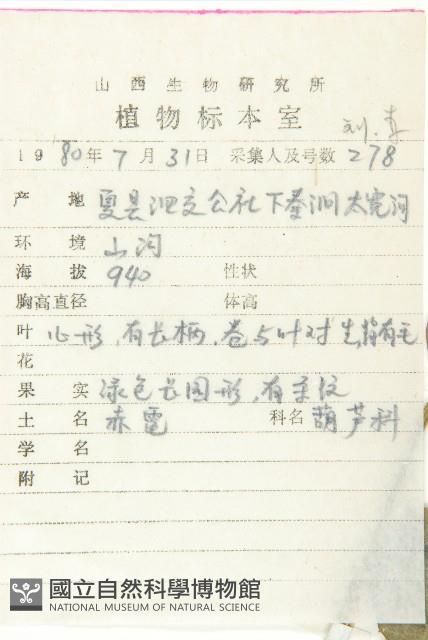 山西生物研究所
植物标本室
刘.
1980年7月31日 采集人及号数 278
产地 夏县泗交公社下秦涧太宽河
环境 山沟
海拔 940 性状
胸高直径 体高
叶 心形,有长柄,卷 与叶对生,背有毛
花
果实 绿色长圆形,有条纹
土名 赤雹 科名 葫芦科
学名
附记
國立自然科學博物館
NATIONAL MUSEUM OF NATURAL SCIENCE